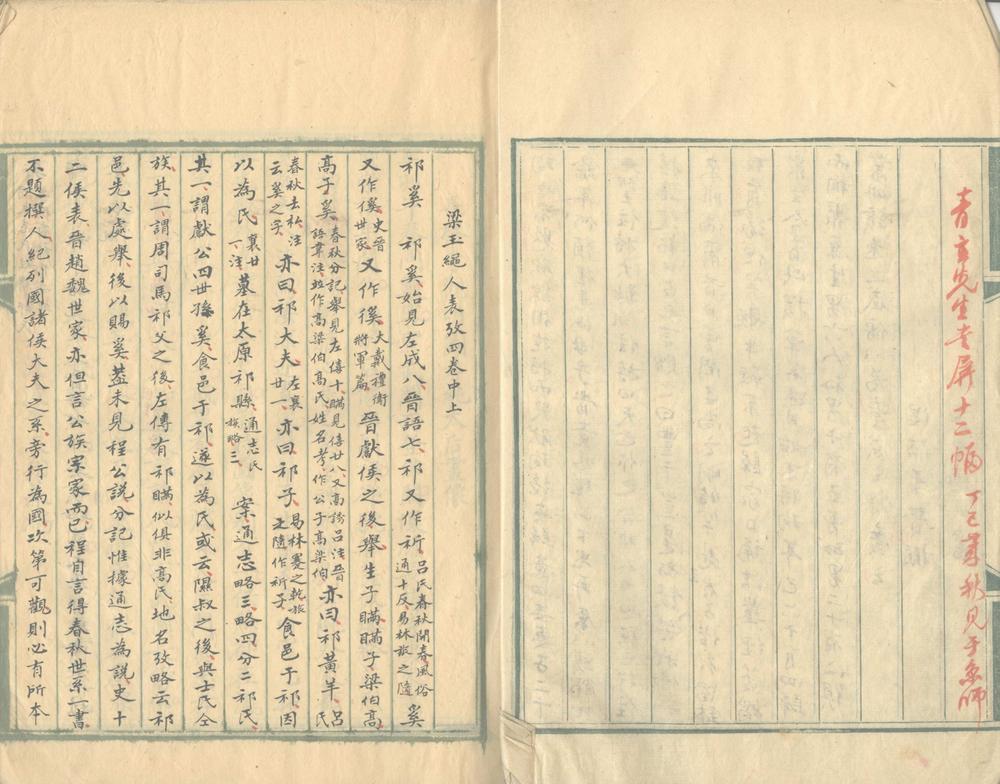 青主先生書屏十二幅 丁巳暮秋見于京師
梁玉繩人表攷四卷中上
祁奚 祁奚始見左成八晉語七祁又作祈呂氏春秋開春風俗通十反易林散之隨奚
又作傒史晉世家又作徯大戴禮衛將軍篇晉獻侯之後舉生子瞞瞞子梁伯高
高子奚春秋分記舉見左僖十瞞見僖廿八又高誘呂注晉語韋注竝作高梁伯高氏姓名考作公子高梁伯亦曰祁黃羊呂氏
春秋去私注云奚之字亦曰祁大夫左襄廿一亦曰祁子易林蹇之乾旅之隨作祈子食邑于祁因
以為氏襄廿一注墓在太原祁縣通志氏族略三 案通志略三略四分二祁氏
其一謂獻公四世孫奚食邑于祁遂以為氏或云隰叔之後與士氏仝
族其一謂周司馬祁父之後左傳有祁瞞似俱非高氏地名攷略云祁
邑先以處舉後以賜奚蓋未見程公說分記惟據通志為說史十
二侯表晉趙魏世家亦但言公族宗家而已程自言得春秋世系一書
不題撰人紀列國諸侯大夫之系旁行為國次第可觀則必有所本